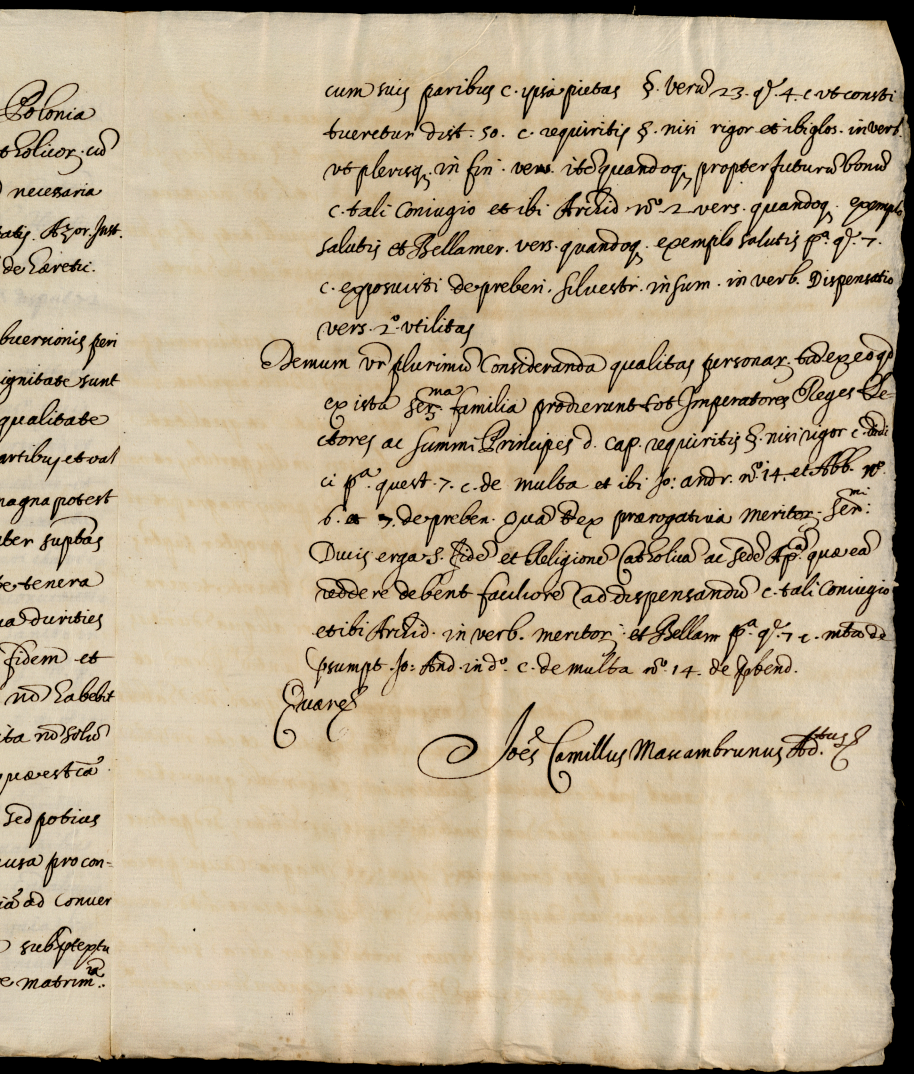 Polonia
necessaria
Azor. Just.
de hæretic.
buersionis peri
ignitate sunt
qualitate
artibus et val
magna potest
tenera
durities
fidem et
nō habebit
nō soliō
quæ est cā
sed potius
causa pro con-
ad conver
e matrimⁱᵃ.
cum suis paribus c. ipsa pietas §. verū 23. q̄. 4. c. vt consti
tueretur dist. 50. c. requiritis §. nisi rigor et ibi glos. in verb.
vt plerisq; in fin. vers. itē quandoq; propter futurū bonū
c. tali Coniugio et ibi Archid nº. 2 vers. quandoq. exemplo
salutis et Bellamer. vers. quandoq. exemplo salutis pª. q̄. 7.
c. exposuisti de preben. silvestr. in sum. in verb. Dispensatio
vers. 2º. vtilitas
Demum vr̄ plurimū Consideranda qualitas personar; ex eo qd
ex ista Serᵐᵃ familia prodierunt tot Imperatores Reges Ele-
ctores ac summi Principes d. cap. requiritis §. nisi rigor c.
ci pª. quest. 7. c. de multa et ibi Jo: andr. nº. 14. et Abb. nº.
6. et 7. de preben. Qua ex prærogativa meritor; Serᵐⁱ:
Ducis erga S. Fidē et Religionē Catholicā ac sedē Apᶜᵃ. quæ eā
reddere debent faciliorē ad dispensandū c. tali Coniugio
et ibi Archid. in verb. meritor; et Bellam pª. q̄. 7 c.
psumpt. Jo: And. in dº. c. de multa nº. 14. de pbend.
Quare &
Joēs Camillus Maxambrunus Ad.ᵗᵘˢ